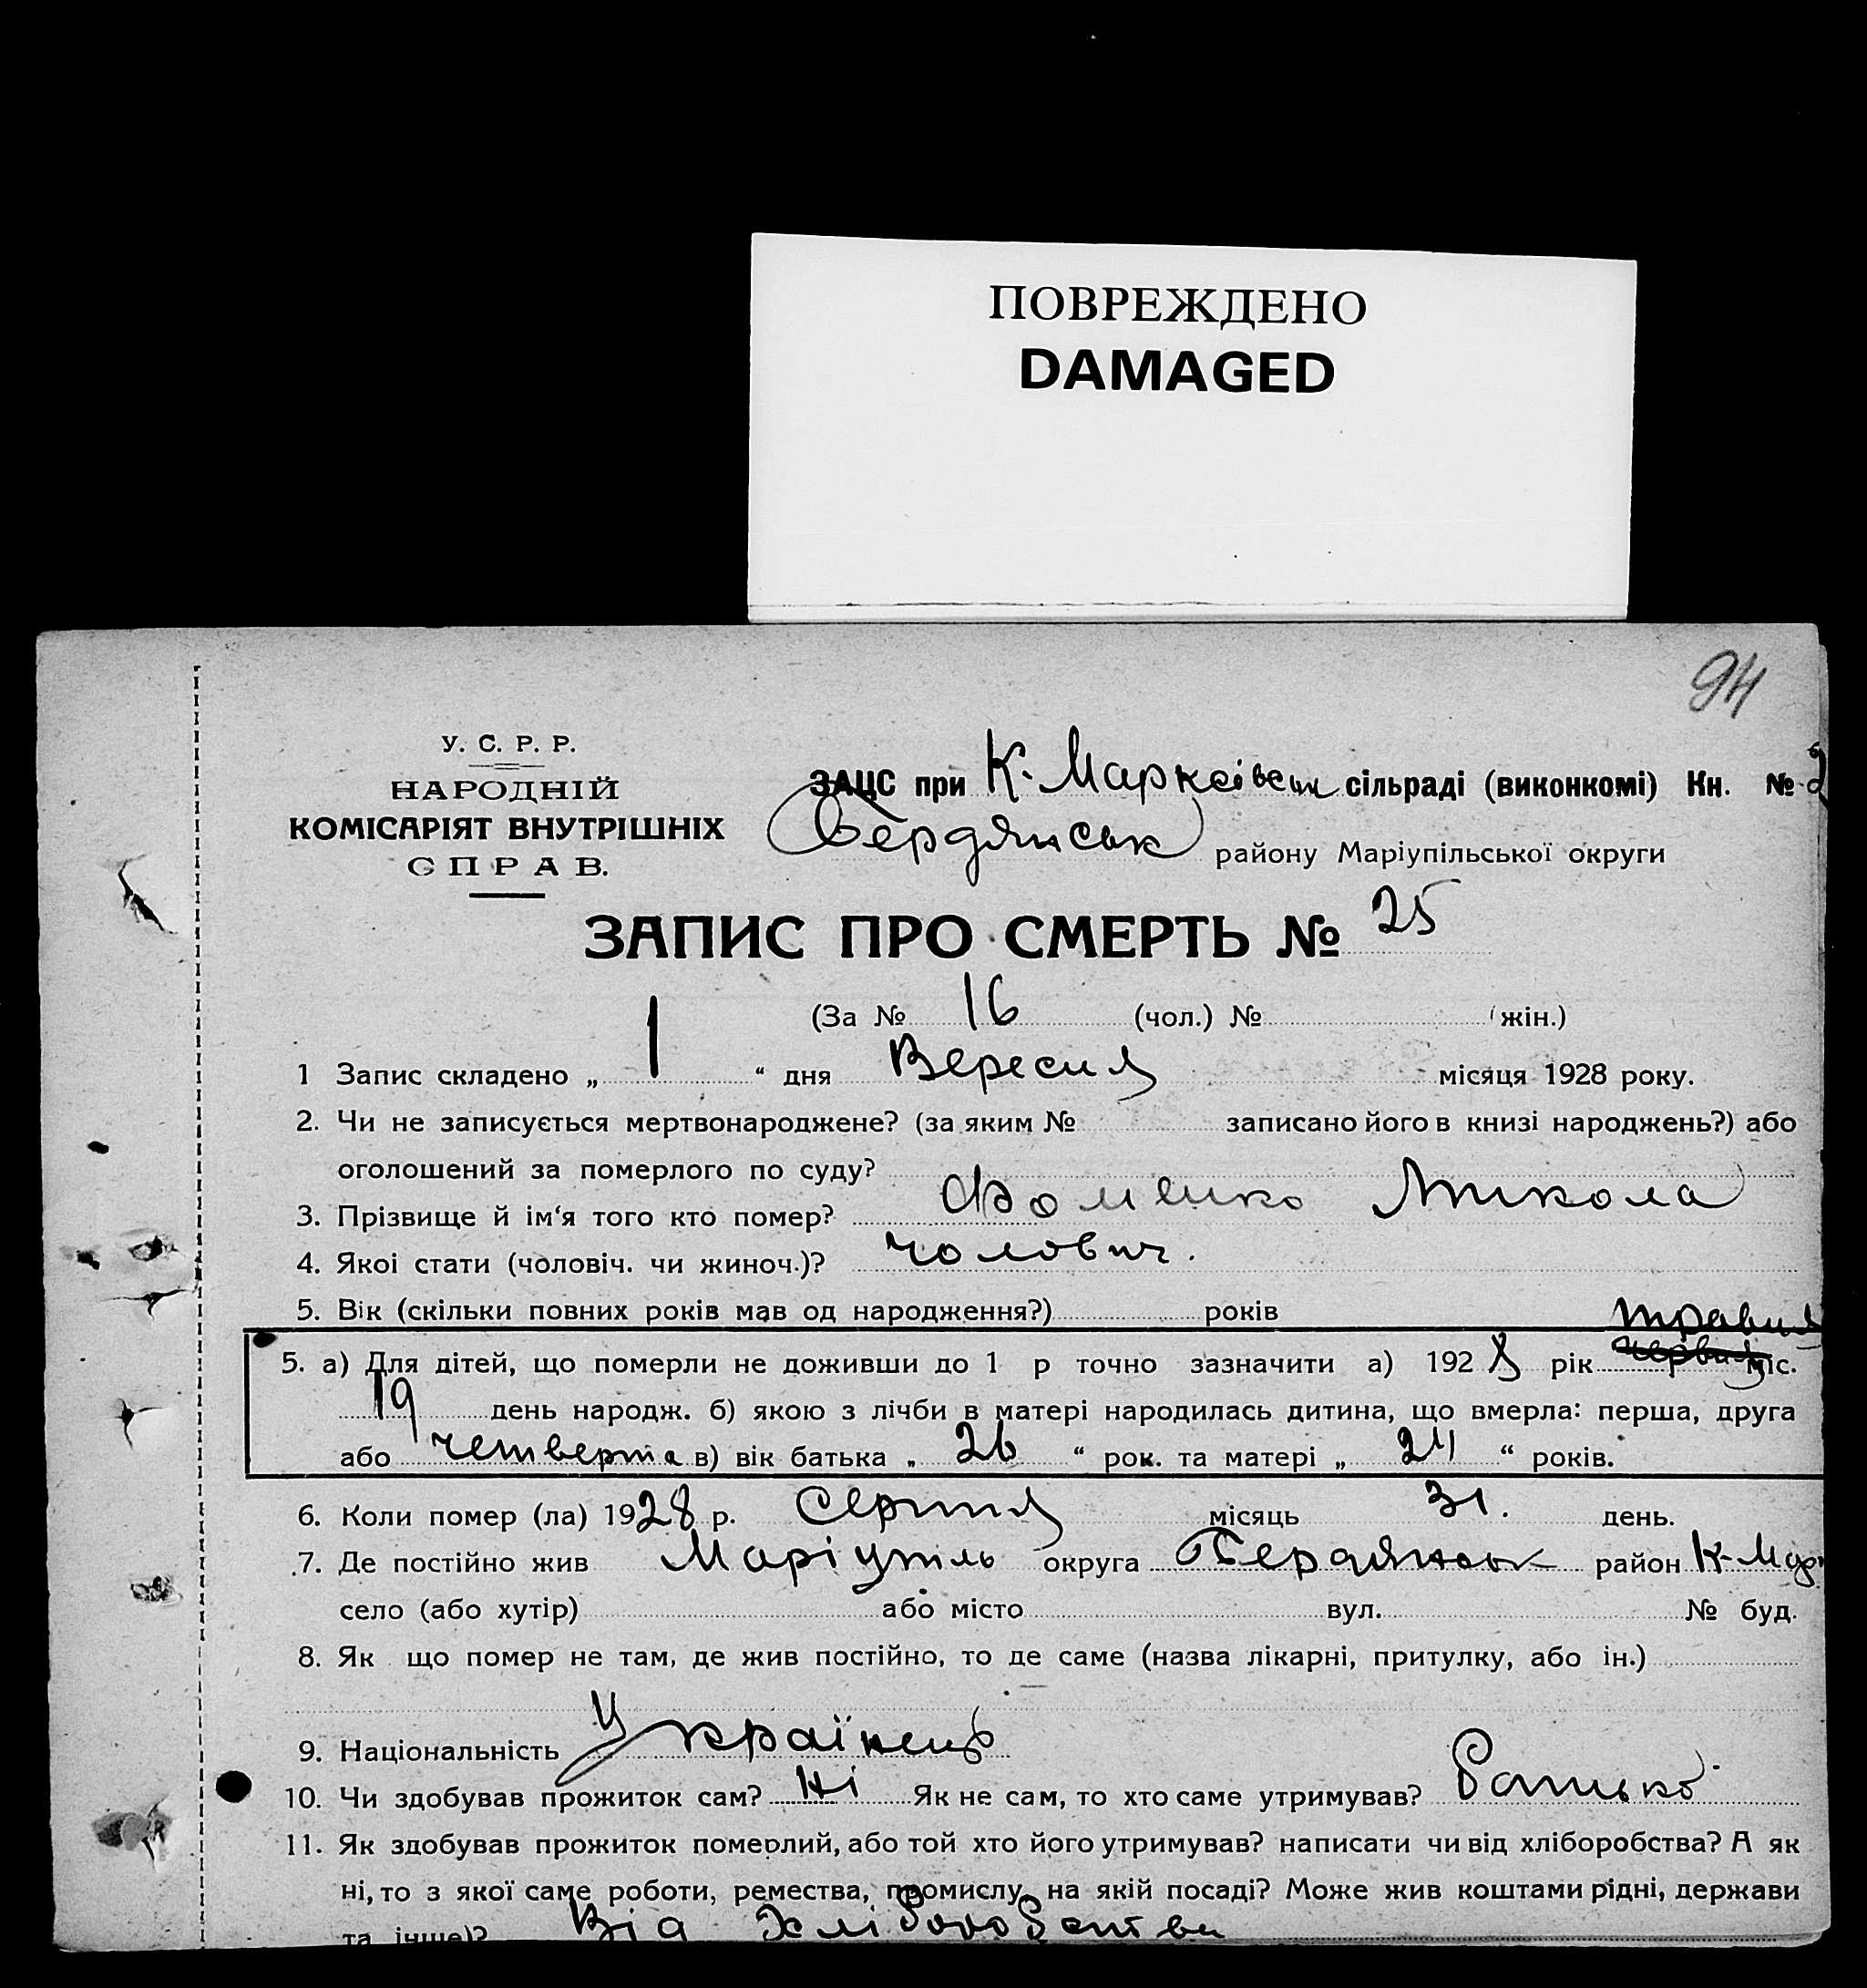 ПОВРЕЖДЕНО
DAMAGED
94
У. С. Р. Р.
НАРОДНІЙ
КОМІСАРІЯТ ВНУТРІШНІХ
СПРАВ.
ЗАЦС при К. Марксівськ сільраді (виконкомі) Кн. № 2
Бердянськ району Маріупільської округи
ЗАПИС ПРО СМЕРТЬ № 25
(За № 16 (чол.) № жін.)
1 Запис складено „ 1 “ дня Вересня місяця 1928 року.
2. Чи не записується мертвонароджене? (за яким № записано його в книзі народжень?) або
оголошений за померлого по суду?
3. Прізвище й ім‘я того кто помер? Фоменко Микола
4. Якоі стати (чоловіч. чи жиноч.)? чолович.
5. Вік (скільки повних років мав од народження?) років
травня
5. а) Для дітей, що померли не доживши до 1 р точно зазначити а) 1928 рік червня міс.
19 день народж. б) якою з лічби в матері народилась дитина, що вмерла: перша, друга
або четверта в) вік батька „ 26 “ рок. та матері „ 24 “ років.
6. Коли помер (ла) 1928 р. Серпня місяць 31. день.
7. Де постійно жив Маріупіль округа Бердянськ район К-Мар
село (або хутір) або місто вул. № буд.
8. Як що помер не там, де жив постійно, то де саме (назва лікарні, притулку, або ін.)
9. Національність Українець
10. Чи здобував прожиток сам? Ні Як не сам, то хто саме утримував? Батько
11. Як здобував прожиток померлий, або той хто його утримував? написати чи від хліборобства? А як
ні, то з якої саме роботи, ремества, промислу, на якій посаді? Може жив коштами рідні, держави
та інше)? Від Хліборобства